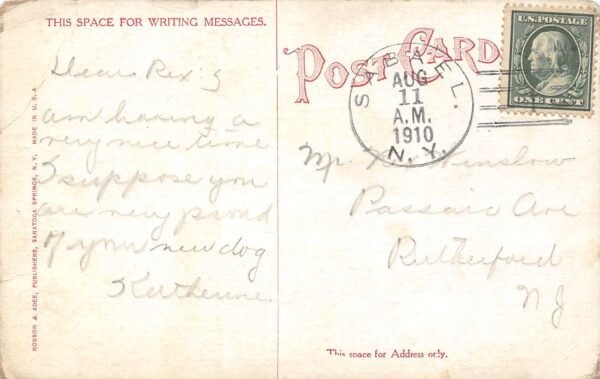 THIS SPACE FOR WRITING MESSAGES.
Dear Rex:
am having a
very nice time
I suppose you
are very proud
of your new dog
Katherine.
ROBSON & ADEE, PUBLISHERS, SARATOGA SPRINGS, N. Y. MADE IN U.S.A.
POST CARD
SABAEL.
AUG
11
A.M.
1910
N.Y.
U.S. POSTAGE
ONE CENT
Mr Winslow
Passaic Ave
Rutherford
N J
This space for Address only.